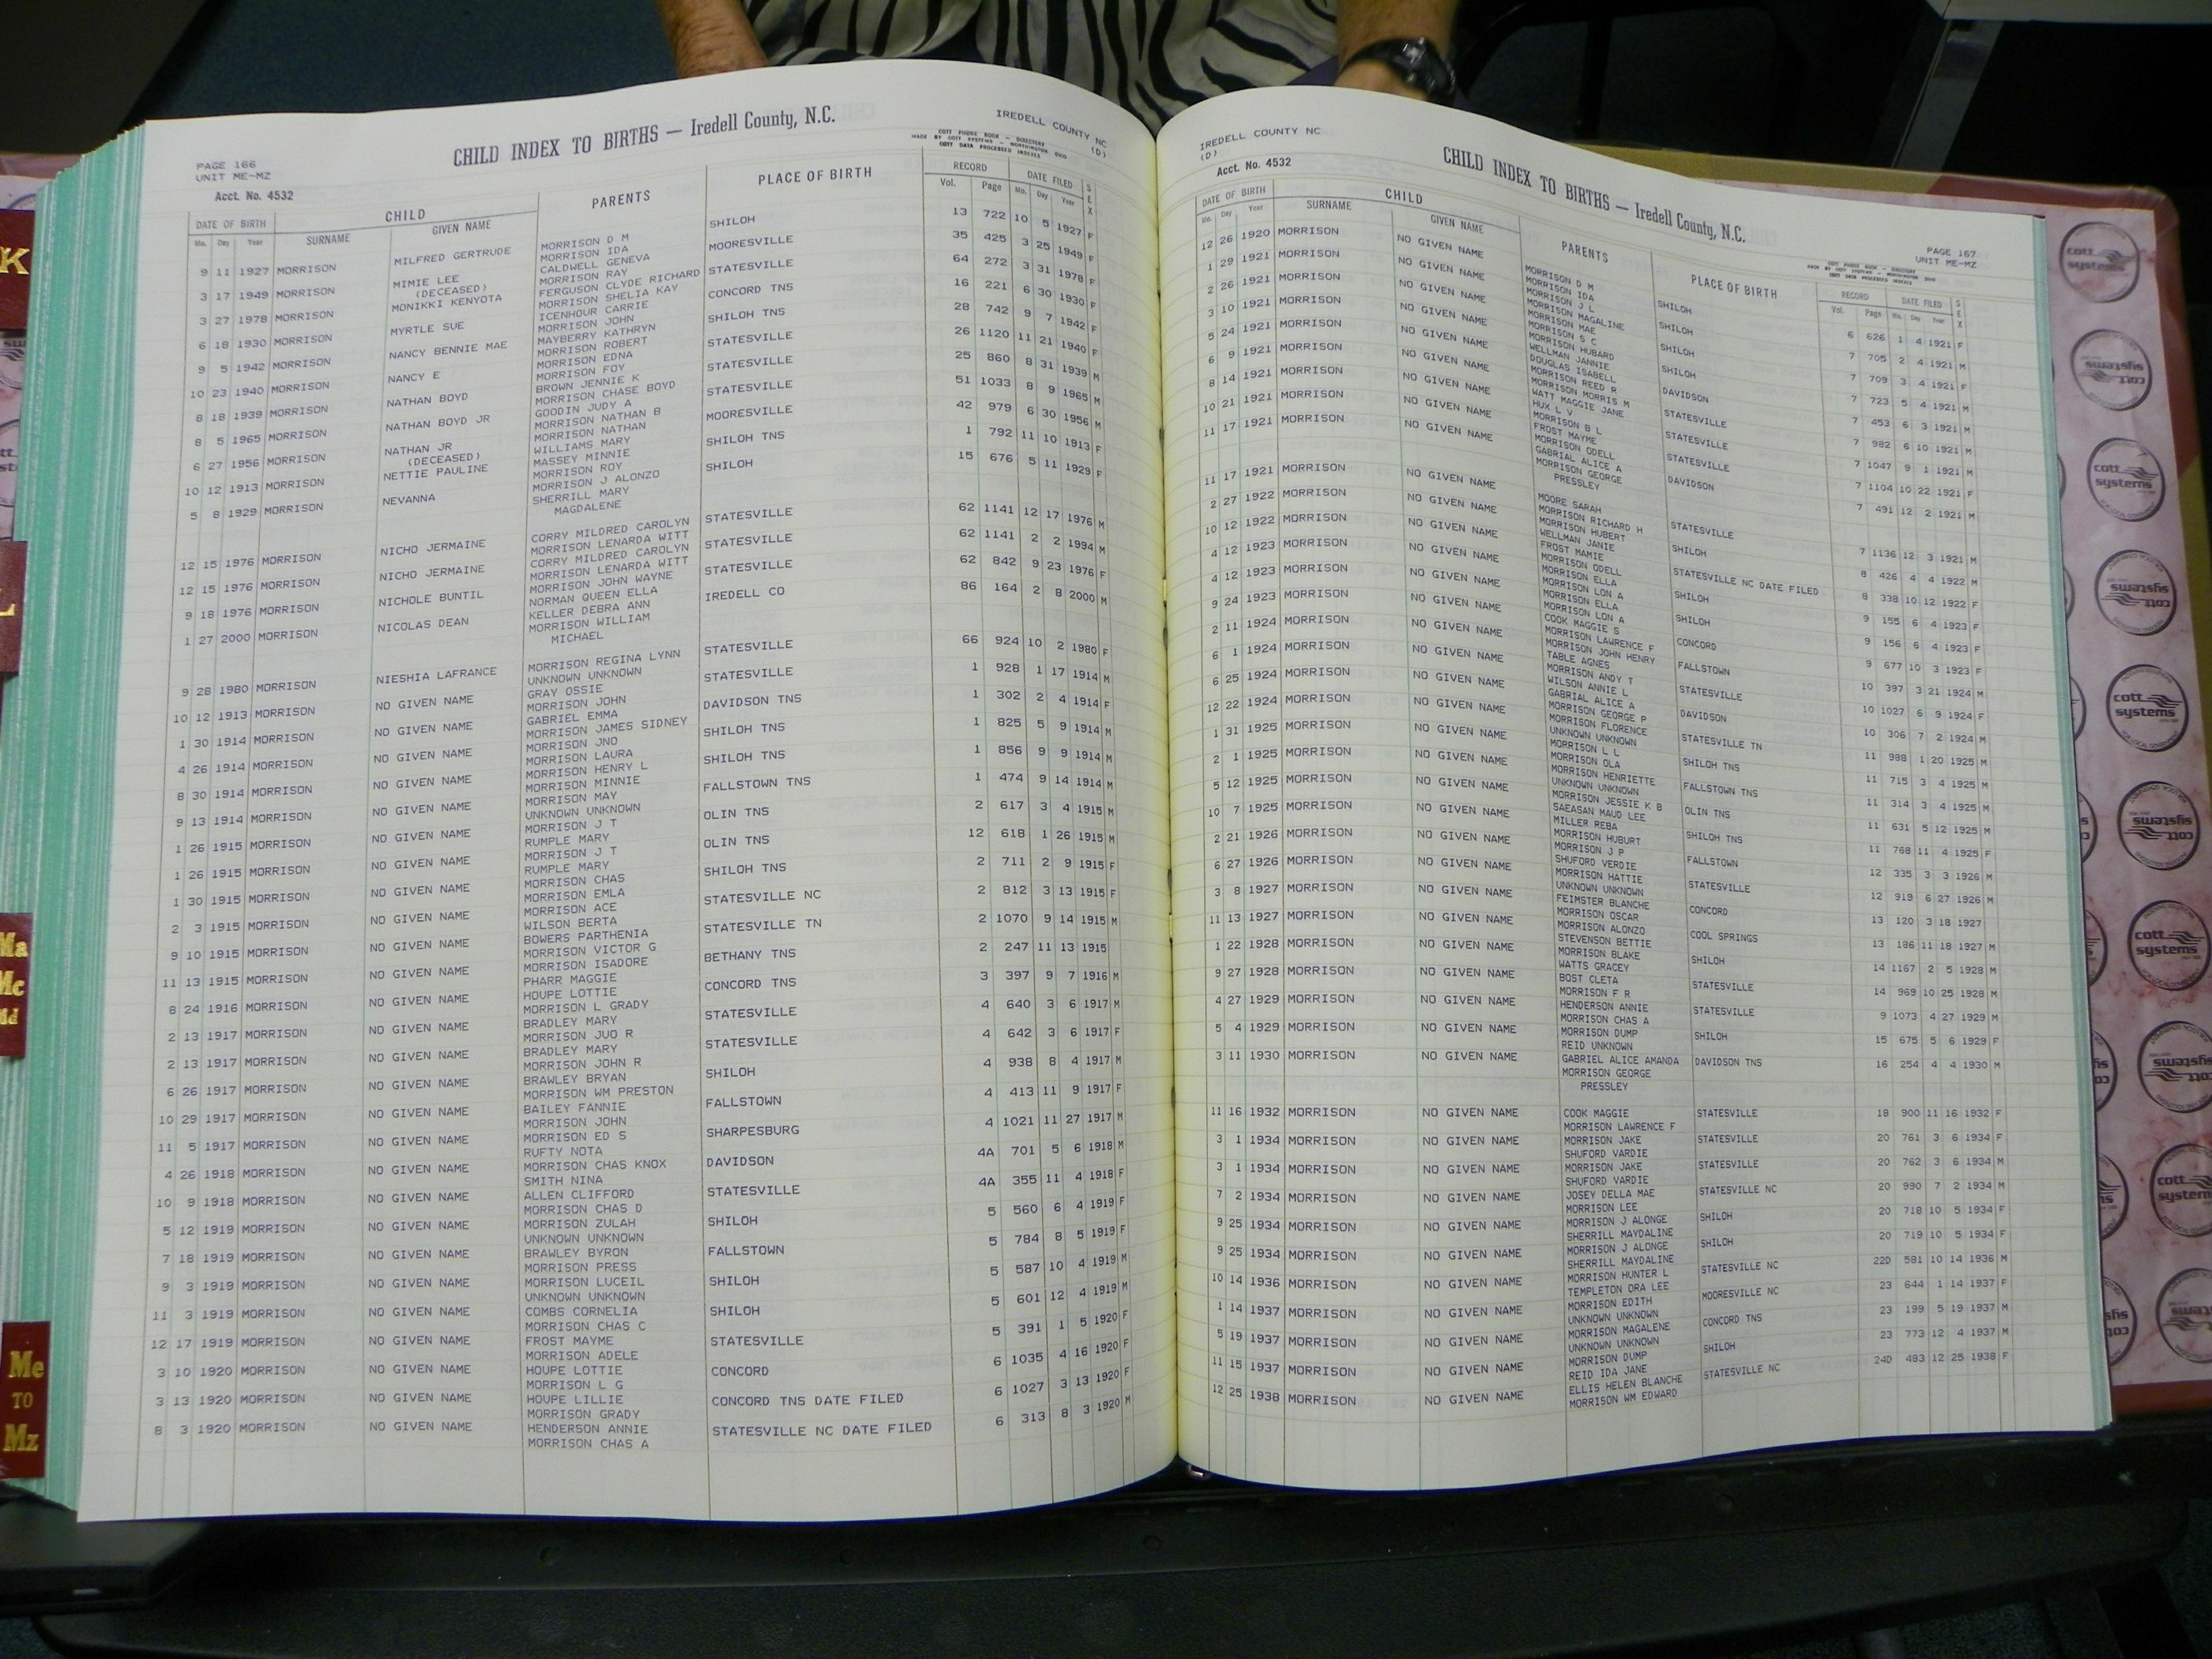 PAGE 166
UNIT ME-MZ
Acct. No. 4532
CHILD INDEX TO BIRTHS — Iredell County, N.C.
IREDELL COUNTY NC
(D)
COTT PHONE BOOK - DIRECTORY
MADE BY COTT SYSTEMS - WORTHINGTON OHIO
COTT DATA PROCESSED INDEXES
DATE OF BIRTH CHILD PARENTS PLACE OF BIRTH RECORD DATE FILED SEX
Mo. Day Year SURNAME GIVEN NAME Vol. Page Mo. Day Year
9 11 1927 MORRISON MILFRED GERTRUDE MORRISON D M SHILOH 13 722 10 5 1927 F
MORRISON IDA
3 17 1949 MORRISON MIMIE LEE CALDWELL GENEVA MOORESVILLE 35 425 3 25 1949 F
(DECEASED) MORRISON RAY
3 27 1978 MORRISON MONIKKI KENYOTA FERGUSON CLYDE RICHARD STATESVILLE 64 272 3 31 1978 F
MORRISON SHELIA KAY
6 18 1930 MORRISON MYRTLE SUE ICENHOUR CARRIE CONCORD TNS 16 221 6 30 1930 F
MORRISON JOHN
9 5 1942 MORRISON NANCY BENNIE MAE MAYBERRY KATHRYN SHILOH TNS 28 742 9 7 1942 F
MORRISON ROBERT
10 23 1940 MORRISON NANCY E MORRISON EDNA STATESVILLE 26 1120 11 21 1940 F
MORRISON FOY
8 18 1939 MORRISON NATHAN BOYD BROWN JENNIE K STATESVILLE 25 860 8 31 1939 M
MORRISON CHASE BOYD
8 5 1965 MORRISON NATHAN BOYD JR GOODIN JUDY A STATESVILLE 51 1033 8 9 1965 M
MORRISON NATHAN B
6 27 1956 MORRISON NATHAN JR MORRISON NATHAN MOORESVILLE 42 979 6 30 1956 M
(DECEASED) WILLIAMS MARY
10 12 1913 MORRISON NETTIE PAULINE MASSEY MINNIE SHILOH TNS 1 792 11 10 1913 F
MORRISON ROY
5 8 1929 MORRISON NEVANNA MORRISON J ALONZO SHILOH 15 676 5 11 1929 F
SHERRILL MARY
MAGDALENE
12 15 1976 MORRISON NICHO JERMAINE CORRY MILDRED CAROLYN STATESVILLE 62 1141 12 17 1976 M
MORRISON LENARDA WITT
12 15 1976 MORRISON NICHO JERMAINE CORRY MILDRED CAROLYN STATESVILLE 62 1141 2 2 1994 M
MORRISON LENARDA WITT
9 18 1976 MORRISON NICHOLE BUNTIL MORRISON JOHN WAYNE STATESVILLE 62 842 9 23 1976 F
NORMAN QUEEN ELLA
1 27 2000 MORRISON NICOLAS DEAN KELLER DEBRA ANN IREDELL CO 86 164 2 8 2000 M
MORRISON WILLIAM
MICHAEL
9 28 1980 MORRISON NIESHIA LAFRANCE MORRISON REGINA LYNN STATESVILLE 66 924 10 2 1980 F
UNKNOWN UNKNOWN
10 12 1913 MORRISON NO GIVEN NAME GRAY OSSIE STATESVILLE 1 928 1 17 1914 M
MORRISON JOHN
1 30 1914 MORRISON NO GIVEN NAME GABRIEL EMMA DAVIDSON TNS 1 302 2 4 1914 F
MORRISON JAMES SIDNEY
4 26 1914 MORRISON NO GIVEN NAME MORRISON JNO SHILOH TNS 1 825 5 9 1914 M
MORRISON LAURA
8 30 1914 MORRISON NO GIVEN NAME MORRISON HENRY L SHILOH TNS 1 856 9 9 1914 M
MORRISON MINNIE
9 13 1914 MORRISON NO GIVEN NAME MORRISON MAY FALLSTOWN TNS 1 474 9 14 1914 M
UNKNOWN UNKNOWN
1 26 1915 MORRISON NO GIVEN NAME MORRISON J T OLIN TNS 2 617 3 4 1915 M
RUMPLE MARY
1 26 1915 MORRISON NO GIVEN NAME MORRISON J T OLIN TNS 12 618 1 26 1915 M
RUMPLE MARY
1 30 1915 MORRISON NO GIVEN NAME MORRISON CHAS SHILOH TNS 2 711 2 9 1915 F
MORRISON EMLA
2 3 1915 MORRISON NO GIVEN NAME MORRISON ACE STATESVILLE NC 2 812 3 13 1915 F
WILSON BERTA
9 10 1915 MORRISON NO GIVEN NAME BOWERS PARTHENIA STATESVILLE TN 2 1070 9 14 1915 M
MORRISON VICTOR G
11 13 1915 MORRISON NO GIVEN NAME MORRISON ISADORE BETHANY TNS 2 247 11 13 1915
PHARR MAGGIE
8 24 1916 MORRISON NO GIVEN NAME HOUPE LOTTIE CONCORD TNS 3 397 9 7 1916 M
MORRISON L GRADY
2 13 1917 MORRISON NO GIVEN NAME BRADLEY MARY STATESVILLE 4 640 3 6 1917 M
MORRISON JUO R
2 13 1917 MORRISON NO GIVEN NAME BRADLEY MARY STATESVILLE 4 642 3 6 1917 F
MORRISON JOHN R
6 26 1917 MORRISON NO GIVEN NAME BRAWLEY BRYAN SHILOH 4 938 8 4 1917 M
MORRISON WM PRESTON
10 29 1917 MORRISON NO GIVEN NAME BAILEY FANNIE FALLSTOWN 4 413 11 9 1917 F
MORRISON JOHN
11 5 1917 MORRISON NO GIVEN NAME MORRISON ED S SHARPESBURG 4 1021 11 27 1917 M
RUFTY NOTA
4 26 1918 MORRISON NO GIVEN NAME MORRISON CHAS KNOX DAVIDSON 4A 701 5 6 1918 M
SMITH NINA
10 9 1918 MORRISON NO GIVEN NAME ALLEN CLIFFORD STATESVILLE 4A 355 11 4 1918 F
MORRISON CHAS D
5 12 1919 MORRISON NO GIVEN NAME MORRISON ZULAH SHILOH 5 560 6 4 1919 F
UNKNOWN UNKNOWN
7 18 1919 MORRISON NO GIVEN NAME BRAWLEY BYRON FALLSTOWN 5 784 8 5 1919 F
MORRISON PRESS
9 3 1919 MORRISON NO GIVEN NAME MORRISON LUCEIL SHILOH 5 587 10 4 1919 M
UNKNOWN UNKNOWN
11 3 1919 MORRISON NO GIVEN NAME COMBS CORNELIA SHILOH 5 601 12 4 1919 M
MORRISON CHAS C
12 17 1919 MORRISON NO GIVEN NAME FROST MAYME STATESVILLE 5 391 1 5 1920 F
MORRISON ADELE
3 10 1920 MORRISON NO GIVEN NAME HOUPE LOTTIE CONCORD 6 1035 4 16 1920 F
MORRISON L G
3 13 1920 MORRISON NO GIVEN NAME HOUPE LILLIE CONCORD TNS DATE FILED 6 1027 3 13 1920 F
MORRISON GRADY
8 3 1920 MORRISON NO GIVEN NAME HENDERSON ANNIE STATESVILLE NC DATE FILED 6 313 8 3 1920 M
MORRISON CHAS A
IREDELL COUNTY NC
(D)
Acct. No. 4532
CHILD INDEX TO BIRTHS — Iredell County, N.C.
PAGE 167
UNIT ME-MZ
COTT PHONE BOOK - DIRECTORY
MADE BY COTT SYSTEMS - WORTHINGTON OHIO
COTT DATA PROCESSED INDEXES
DATE OF BIRTH CHILD PARENTS PLACE OF BIRTH RECORD DATE FILED SEX
Mo. Day Year SURNAME GIVEN NAME Vol. Page Mo. Day Year
12 26 1920 MORRISON NO GIVEN NAME MORRISON D M SHILOH 6 626 1 4 1921 F
MORRISON IDA
1 29 1921 MORRISON NO GIVEN NAME MORRISON J L SHILOH 7 705 2 4 1921 M
MORRISON MAGALINE
2 26 1921 MORRISON NO GIVEN NAME MORRISON MAE SHILOH 7 709 3 4 1921 F
MORRISON S C
3 10 1921 MORRISON NO GIVEN NAME MORRISON HUBARD SHILOH 7 723 5 4 1921 M
WELLMAN JANNIE
5 24 1921 MORRISON NO GIVEN NAME DOUGLAS ISABELL DAVIDSON 7 453 6 3 1921 M
MORRISON REED R
6 9 1921 MORRISON NO GIVEN NAME MORRISON MORRIS M STATESVILLE 7 982 6 10 1921 M
WATT MAGGIE JANE
8 14 1921 MORRISON NO GIVEN NAME HUX L V STATESVILLE 7 1047 9 1 1921 M
MORRISON B L
10 21 1921 MORRISON NO GIVEN NAME FROST MAYME STATESVILLE 7 1104 10 22 1921 F
MORRISON ODELL
11 17 1921 MORRISON NO GIVEN NAME GABRIAL ALICE A DAVIDSON 7 491 12 2 1921 M
MORRISON GEORGE
PRESSLEY
11 17 1921 MORRISON NO GIVEN NAME MOORE SARAH STATESVILLE 7 1136 12 3 1921 M
MORRISON RICHARD H
2 27 1922 MORRISON NO GIVEN NAME MORRISON HUBERT SHILOH 8 426 4 4 1922 M
WELLMAN JANIE
10 12 1922 MORRISON NO GIVEN NAME FROST MAMIE STATESVILLE NC DATE FILED 8 338 10 12 1922 F
MORRISON ODELL
4 12 1923 MORRISON NO GIVEN NAME MORRISON ELLA SHILOH 9 155 6 4 1923 F
MORRISON LON A
4 12 1923 MORRISON NO GIVEN NAME MORRISON ELLA SHILOH 9 156 6 4 1923 F
MORRISON LON A
9 24 1923 MORRISON NO GIVEN NAME COOK MAGGIE S CONCORD 9 677 10 3 1923 F
MORRISON LAWRENCE F
2 11 1924 MORRISON NO GIVEN NAME MORRISON JOHN HENRY FALLSTOWN 10 397 3 21 1924 M
TABLE AGNES
6 1 1924 MORRISON NO GIVEN NAME MORRISON ANDY T STATESVILLE 10 1027 6 9 1924 F
WILSON ANNIE L
6 25 1924 MORRISON NO GIVEN NAME GABRIAL ALICE A DAVIDSON 10 306 7 2 1924 M
MORRISON GEORGE P
12 22 1924 MORRISON NO GIVEN NAME MORRISON FLORENCE STATESVILLE TN 11 988 1 20 1925 M
UNKNOWN UNKNOWN
1 31 1925 MORRISON NO GIVEN NAME MORRISON L L SHILOH TNS 11 715 3 4 1925 M
MORRISON OLA
2 1 1925 MORRISON NO GIVEN NAME MORRISON HENRIETTE FALLSTOWN TNS 11 314 3 4 1925 M
UNKNOWN UNKNOWN
5 12 1925 MORRISON NO GIVEN NAME MORRISON JESSIE K B OLIN TNS 11 631 5 12 1925 M
SAEASAN MAUD LEE
10 7 1925 MORRISON NO GIVEN NAME MILLER REBA SHILOH TNS 11 768 11 4 1925 F
MORRISON HUBURT
2 21 1926 MORRISON NO GIVEN NAME MORRISON J P FALLSTOWN 12 335 3 3 1926 M
SHUFORD VERDIE
6 27 1926 MORRISON NO GIVEN NAME MORRISON HATTIE STATESVILLE 12 919 6 27 1926 M
UNKNOWN UNKNOWN
3 8 1927 MORRISON NO GIVEN NAME FEIMSTER BLANCHE CONCORD 13 120 3 18 1927
MORRISON OSCAR
11 13 1927 MORRISON NO GIVEN NAME MORRISON ALONZO COOL SPRINGS 13 186 11 18 1927 M
STEVENSON BETTIE
1 22 1928 MORRISON NO GIVEN NAME MORRISON BLAKE SHILOH 14 1167 2 5 1928 M
WATTS GRACEY
9 27 1928 MORRISON NO GIVEN NAME BOST CLETA STATESVILLE 14 969 10 25 1928 M
MORRISON F R
4 27 1929 MORRISON NO GIVEN NAME HENDERSON ANNIE STATESVILLE 9 1073 4 27 1929 M
MORRISON CHAS A
5 4 1929 MORRISON NO GIVEN NAME MORRISON DUMP SHILOH 15 675 5 6 1929 F
REID UNKNOWN
3 11 1930 MORRISON NO GIVEN NAME GABRIEL ALICE AMANDA DAVIDSON TNS 16 254 4 4 1930 M
MORRISON GEORGE
PRESSLEY
11 16 1932 MORRISON NO GIVEN NAME COOK MAGGIE STATESVILLE 18 900 11 16 1932 F
MORRISON LAWRENCE F
3 1 1934 MORRISON NO GIVEN NAME MORRISON JAKE STATESVILLE 20 761 3 6 1934 F
SHUFORD VARDIE
3 1 1934 MORRISON NO GIVEN NAME MORRISON JAKE STATESVILLE 20 762 3 6 1934 M
SHUFORD VARDIE
7 2 1934 MORRISON NO GIVEN NAME JOSEY DELLA MAE STATESVILLE NC 20 990 7 2 1934 M
MORRISON LEE
9 25 1934 MORRISON NO GIVEN NAME MORRISON J ALONGE SHILOH 20 718 10 5 1934 F
SHERRILL MAYDALINE
9 25 1934 MORRISON NO GIVEN NAME MORRISON J ALONGE SHILOH 20 719 10 5 1934 F
SHERRILL MAYDALINE
10 14 1936 MORRISON NO GIVEN NAME MORRISON HUNTER L STATESVILLE NC 22D 581 10 14 1936 M
TEMPLETON ORA LEE
1 14 1937 MORRISON NO GIVEN NAME MORRISON EDITH MOORESVILLE NC 23 644 1 14 1937 F
UNKNOWN UNKNOWN
5 19 1937 MORRISON NO GIVEN NAME MORRISON MAGALENE CONCORD TNS 23 199 5 19 1937 M
UNKNOWN UNKNOWN
11 15 1937 MORRISON NO GIVEN NAME MORRISON DUMP SHILOH 23 773 12 4 1937 M
REID IDA JANE
12 25 1938 MORRISON NO GIVEN NAME ELLIS HELEN BLANCHE STATESVILLE NC 24D 483 12 25 1938 F
MORRISON WM EDWARD
K
L
Ma
Mc
Md
Me
TO
Mz
cott
systems